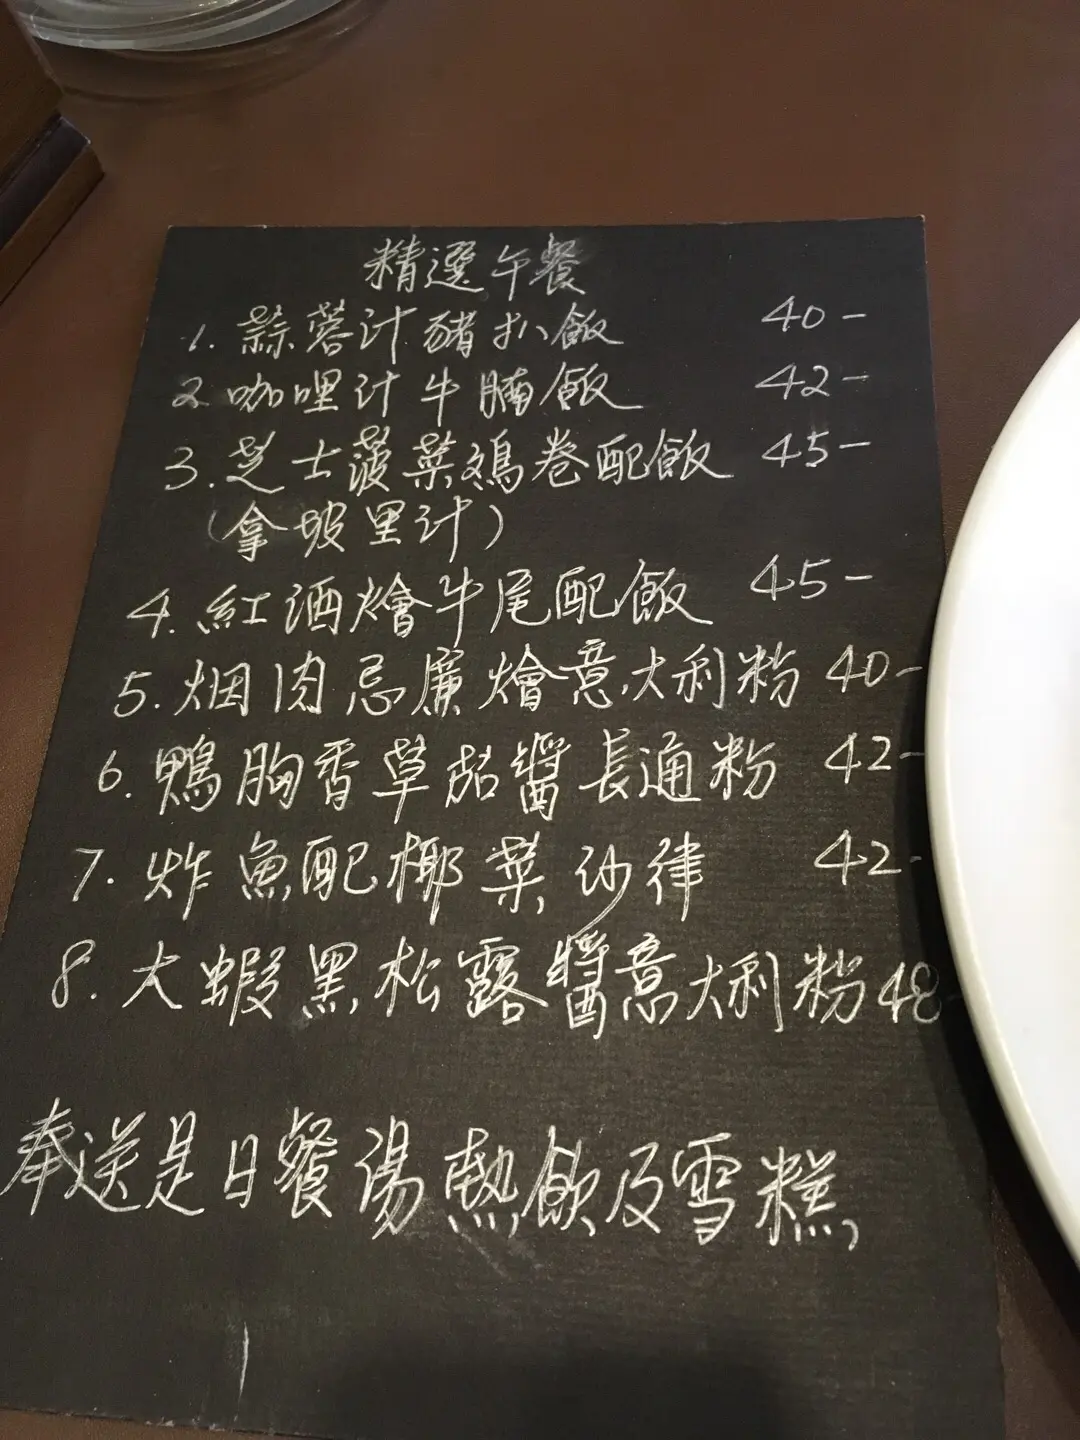 精選午餐
1. 蒜蓉汁豬扒飯 40-
2. 咖哩汁牛腩飯 42-
3. 芝士菠菜鷄卷配飯 45-
(拿坡里汁)
4. 紅酒燴牛尾配飯 45-
5. 烟肉忌廉燴意大利粉 40-
6. 鴨胸香草茄醬長通粉 42-
7. 炸魚配椰菜沙律 42-
8. 大蝦黑松露醬意大利粉 48-
奉送是日餐湯熱飲及雪糕